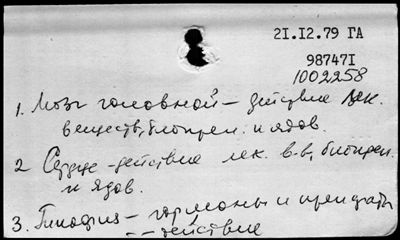 21.12.79 ГА
987471
1002258
1. Мозг головной - действие лек.
веществ, биопреп. и ядов.
2 Сердце - действие лек. в-в, биопреп.
и ядов.
3. Гипофиз - гормоны и препараты
- - действие